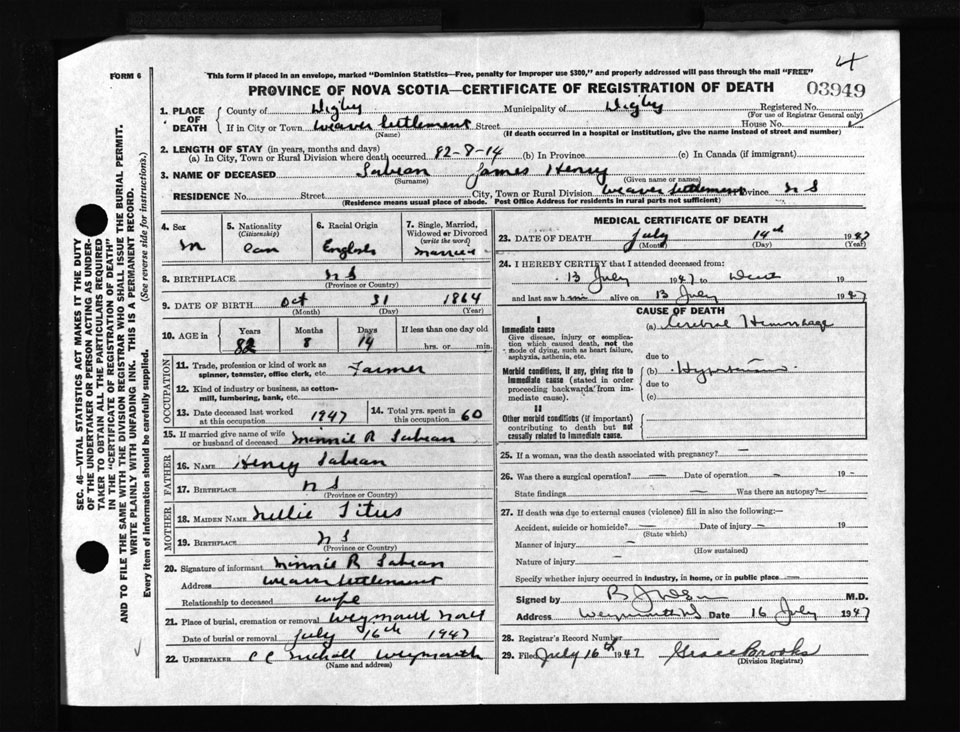 4
FORM 6
This form if placed in an envelope, marked "Dominion Statistics—Free, penalty for improper use $300," and properly addressed will pass through the mail "FREE"
PROVINCE OF NOVA SCOTIA—CERTIFICATE OF REGISTRATION OF DEATH 03949
1. PLACE OF DEATH
County of Digby Municipality of Digby Registered No.
(For use of Registrar General only)
If in City or Town Weaver Settlement Street House No.
(Name) (If death occurred in a hospital or institution, give the name instead of street and number)
2. LENGTH OF STAY (in years, months and days)
(a) In City, Town or Rural Division where death occurred 82-8-14 (b) In Province (c) In Canada (if immigrant)
3. NAME OF DECEASED Sabean James Henry
(Surname) (Given name or names)
RESIDENCE No. Street City, Town or Rural Division Weaver Settlement Province N S
(Residence means usual place of abode. Post Office Address for residents in rural parts not sufficient)
4. Sex M
5. Nationality (Citizenship) Can
6. Racial Origin English
7. Single, Married, Widowed or Divorced (write the word) Married
8. BIRTHPLACE N S
(Province or Country)
9. DATE OF BIRTH Oct 31 1864
(Month) (Day) (Year)
10. AGE in Years Months Days If less than one day old
82 8 14 hrs. or min.
OCCUPATION
11. Trade, profession or kind of work as spinner, teamster, office clerk, etc. Farmer
12. Kind of industry or business, as cotton-mill, lumbering, bank, etc.
13. Date deceased last worked at this occupation 1947
14. Total yrs. spent in this occupation 60
15. If married give name of wife or husband of deceased Minnie R Sabean
FATHER
16. NAME Henry Sabean
17. BIRTHPLACE N S
(Province or Country)
MOTHER
18. MAIDEN NAME Nellie Titus
19. BIRTHPLACE N S
(Province or Country)
20. Signature of informant Minnie R Sabean
Address Weaver Settlement
Relationship to deceased wife
21. Place of burial, cremation or removal Weymouth North
Date of burial or removal July 16th 1947
22. UNDERTAKER Weymouth
(Name and address)
MEDICAL CERTIFICATE OF DEATH
23. DATE OF DEATH July 14th 1947
(Month) (Day) (Year)
24. I HEREBY CERTIFY that I attended deceased from:
13 July 1947 to Death 19
and last saw him alive on 13 July 1947
CAUSE OF DEATH
I
Immediate cause
Give disease, injury or complication which caused death, not the mode of dying, such as heart failure, asphyxia, asthenia, etc.
(a) Cerebral Hemorrhage
due to
Morbid conditions, if any, giving rise to immediate cause (stated in order proceeding backwards from immediate cause).
(b) Hypertension
due to
(c)
II
Other morbid conditions (if important) contributing to death but not causally related to immediate cause.
25. If a woman, was the death associated with pregnancy? —
26. Was there a surgical operation? — Date of operation — 19 -
State findings Was there an autopsy? -
27. If death was due to external causes (violence) fill in also the following:—
Accident, suicide or homicide? — Date of injury - 19
(State which)
Manner of injury -
(How sustained)
Nature of injury -
Specify whether injury occurred in industry, in home, or in public place —
Signed by M.D.
Address Weymouth NS Date 16 July 1947
28. Registrar's Record Number
29. Filed July 16th 1947 Grace Brooks
(Division Registrar)
SEC. 46—VITAL STATISTICS ACT MAKES IT THE DUTY
OF THE UNDERTAKER OR PERSON ACTING AS UNDER-
TAKER TO OBTAIN ALL THE PARTICULARS REQUIRED
IN THE "CERTIFICATE OF REGISTRATION OF DEATH"
AND TO FILE THE SAME WITH THE DIVISION REGISTRAR WHO SHALL ISSUE THE BURIAL PERMIT.
WRITE PLAINLY WITH UNFADING INK. THIS IS A PERMANENT RECORD.
Every item of information should be carefully supplied. (See reverse side for instructions.)